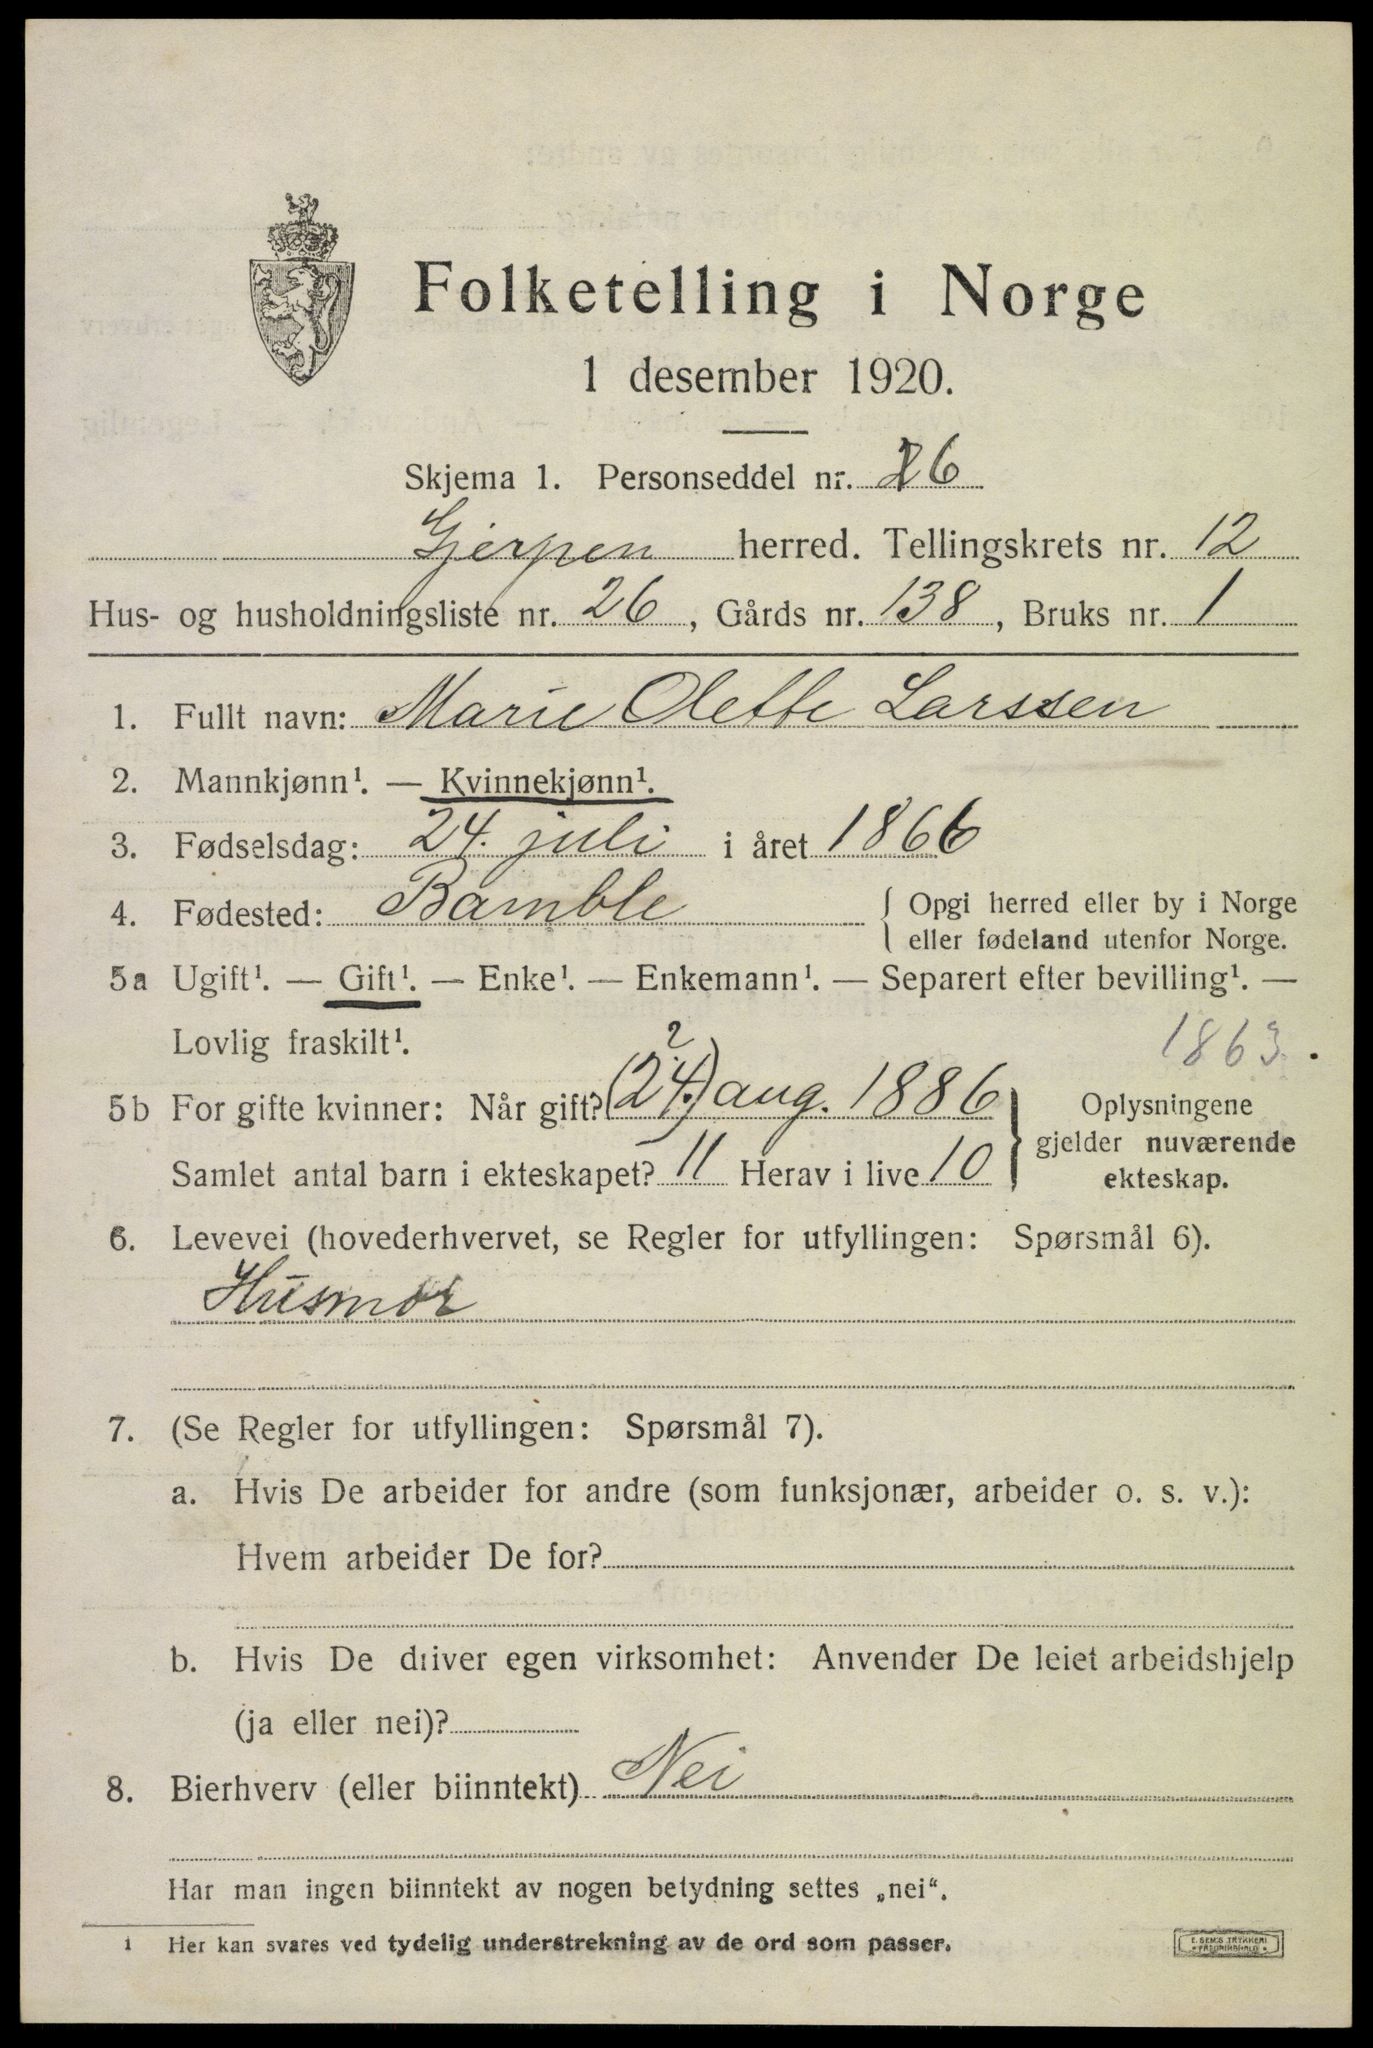 Folketelling i Norge
1 desember 1920.
Skjema 1. Personseddel nr. 26
Gjerpen herred. Tellingskrets nr. 12
Hus- og husholdningsliste nr. 26, Gårds nr. 138, Bruks nr. 1
1. Fullt navn: Marie Olette Larssen
2. Mannkjønn¹. — Kvinnekjønn¹.
3. Fødselsdag: 24. juli i året 1866
4. Fødested: Bamble { Opgi herred eller by i Norge
eller fødeland utenfor Norge.
5a Ugift¹. — Gift¹. — Enke¹. — Enkemann¹. — Separert efter bevilling¹. —
Lovlig fraskilt¹. 1863.
?
5b For gifte kvinner: Når gift? (24.) aug. 1886
Samlet antal barn i ekteskapet? 11 Herav i live 10
} Oplysningene
gjelder nuværende
ekteskap.
6. Levevei (hovederhvervet, se Regler for utfyllingen: Spørsmål 6).
Husmor
7. (Se Regler for utfyllingen: Spørsmål 7).
a. Hvis De arbeider for andre (som funksjonær, arbeider o. s. v.):
Hvem arbeider De for?
b. Hvis De driver egen virksomhet: Anvender De leiet arbeidshjelp
(ja eller nei)?
8. Bierhverv (eller biinntekt) Nei
Har man ingen biinntekt av nogen betydning settes „nei“.
1 Her kan svares ved tydelig understrekning av de ord som passer.
E. SEMS TRYKKERI
FREDRIKSHALD